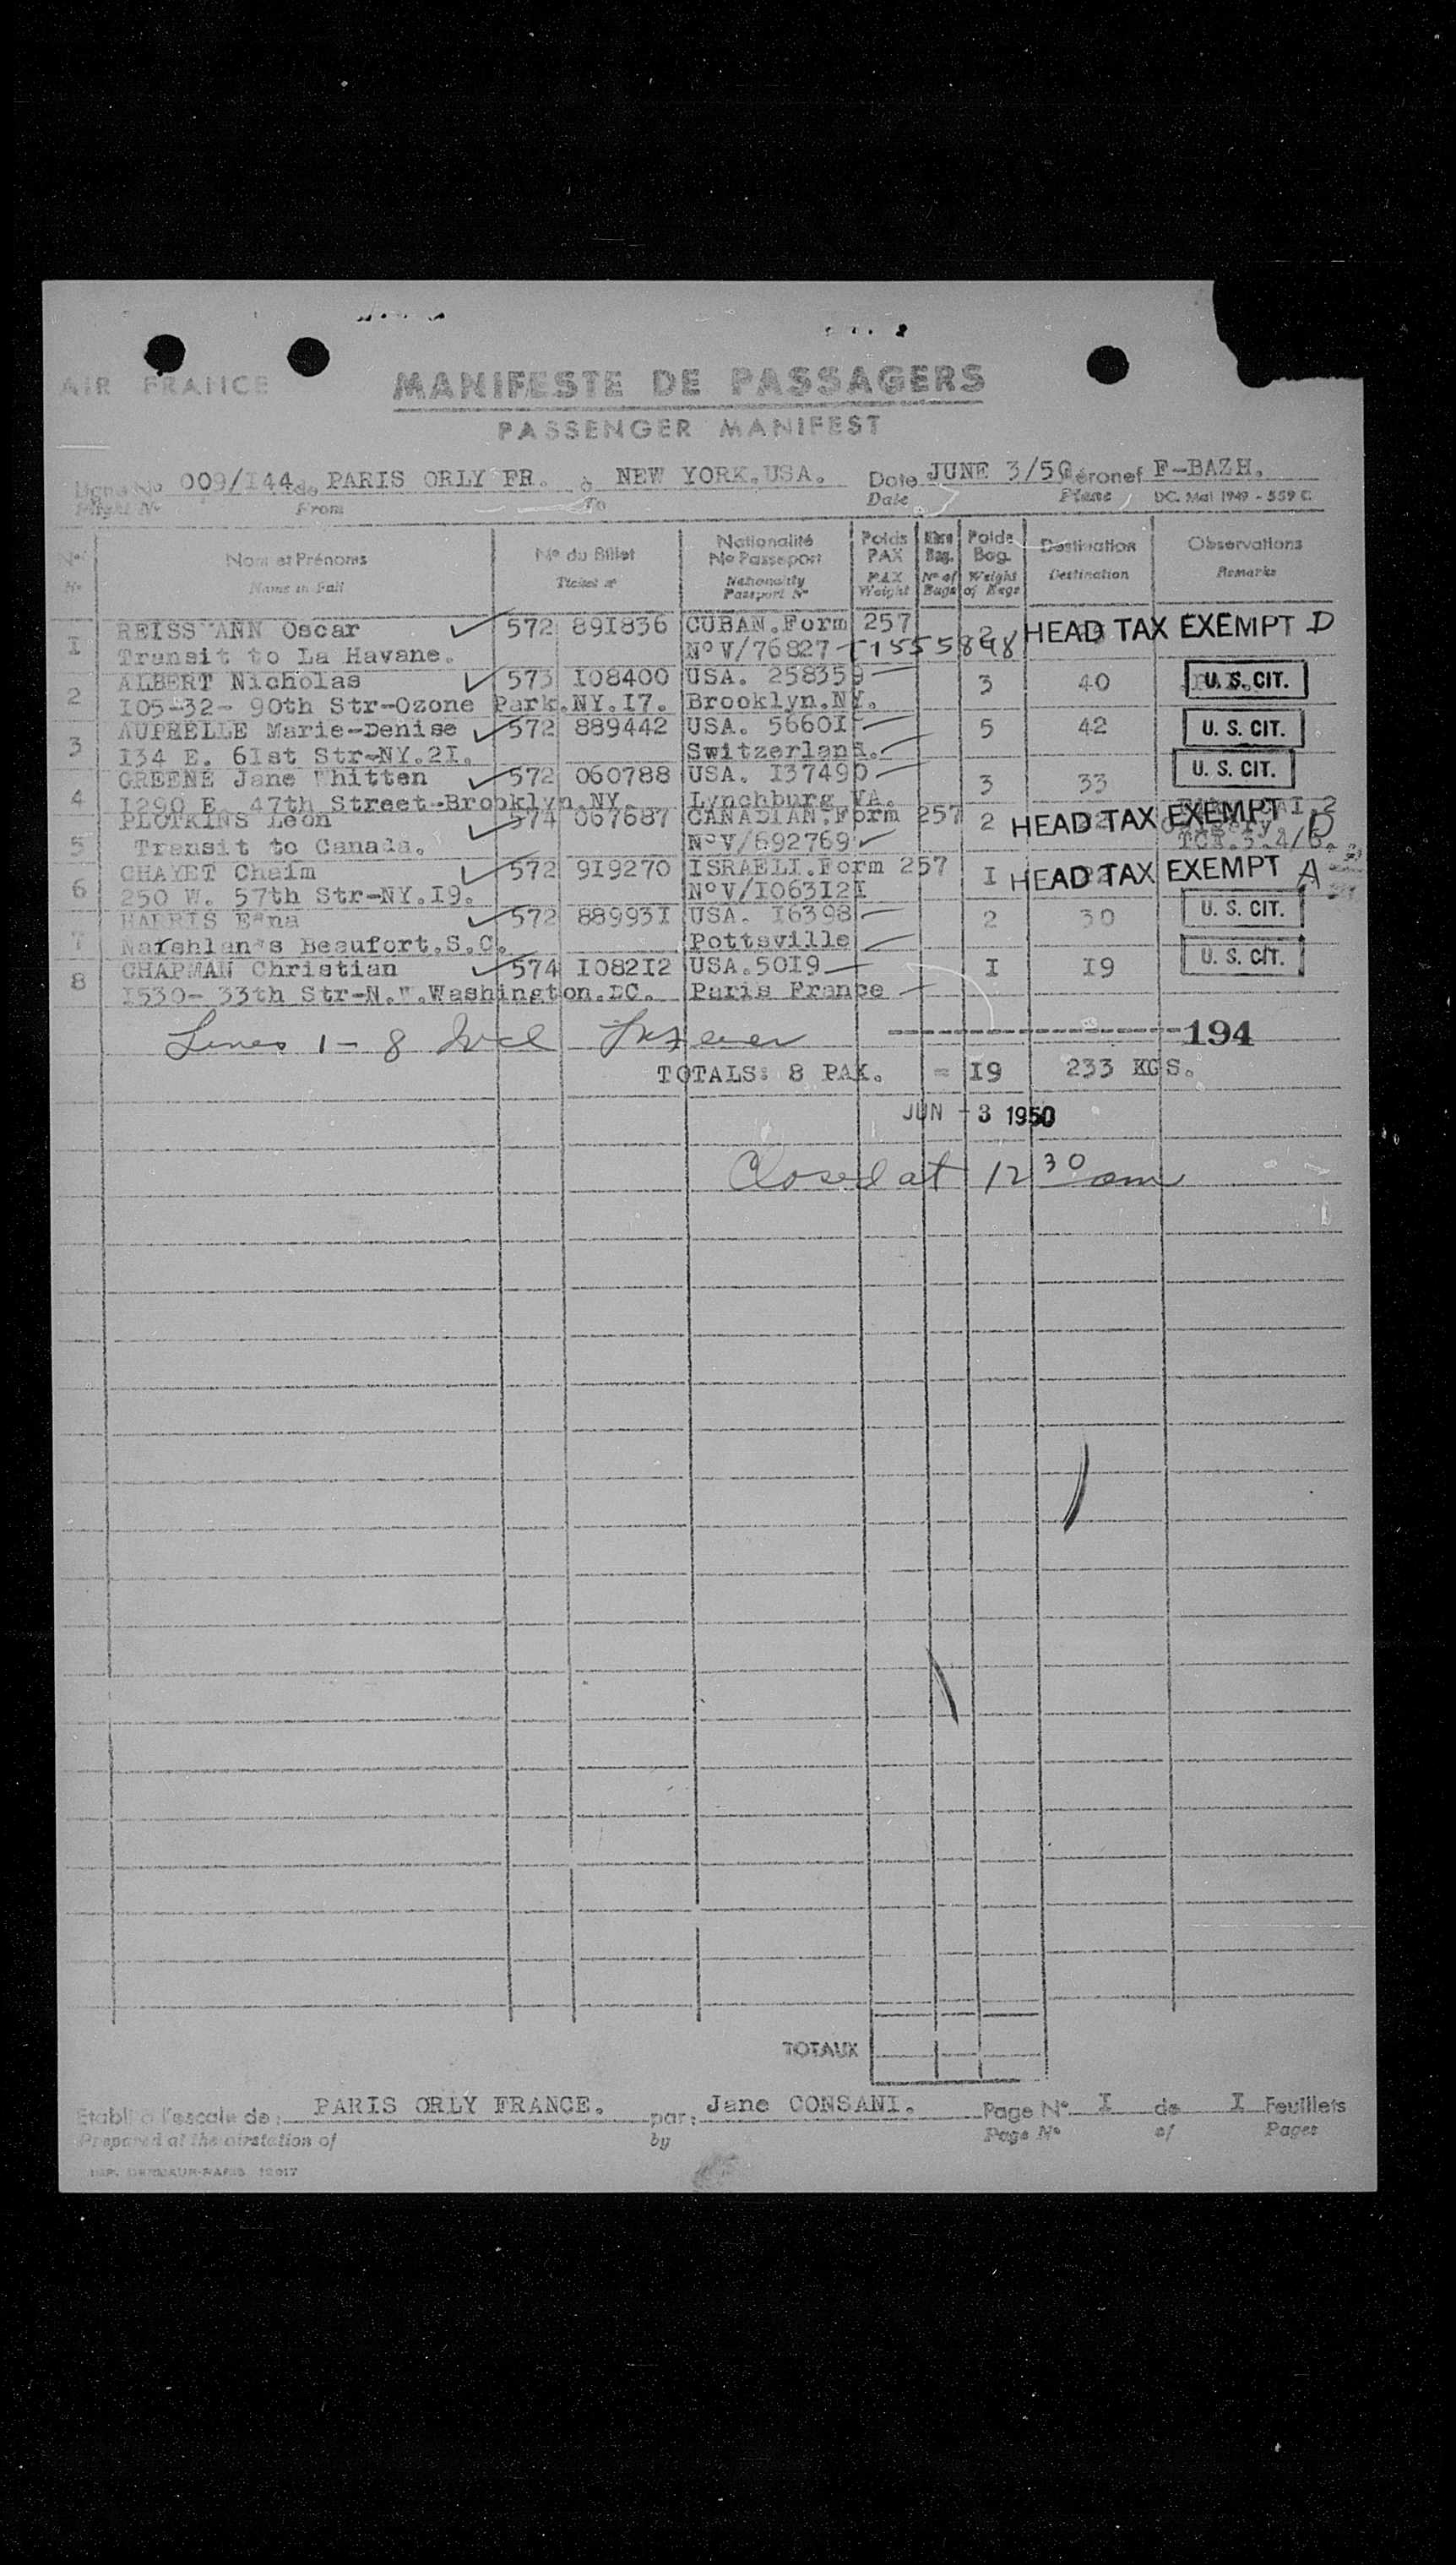 AIR FRANCE
MANIFESTE DE PASSAGERS
PASSENGER MANIFEST
Ligne No 009/I44 de PARIS ORLY FR. à NEW YORK.USA. Date JUNE 3/50 Aéronef F-BAZH.
Flight No From To Date Plane DC. Mai 1949 - 559 C
No Nom et Prénoms No du Billet Nationalité No Passeport Poids PAX Nbre Bag. Poids Bag. Destination Observations
No Name in Full Ticket no Nationality Passport No PAX Weight No of Bags Weight of Bags Destination Remarks
I REISSMANN Oscar 572 89I836 CUBAN.Form 257 2 HEAD TAX EXEMPT D
Transit to La Havane. No V/76827
2 ALBERT Nicholas 573 I08400 USA. 258359 3 40 U. S. CIT.
I05-32- 90th Str-Ozone Park.NY.I7. Brooklyn.NY.
3 AUPRELLE Marie-Denise 572 889442 USA. 5660I 5 42 U. S. CIT.
I34 E. 6Ist Str-NY.2I. Switzerland.
4 GREENE Jane Whitten 572 060788 USA. I37490 3 33 U. S. CIT.
I290 E. 47th Street-Brooklyn.NY. Lynchburg VA.
5 PLOTKINS Leon 574 067687 CANADIAN.Form 257 2 HEAD TAX EXEMPT D
Transit to Canada. No V/692769 TCA.3.4/6.
6 CHAYET Chaim 572 9I9270 ISRAELI.Form 257 I HEAD TAX EXEMPT A
250 W. 57th Str-NY.I9. No V/I063I2I
7 HARRIS Edna 572 88993I USA. I6398 2 30 U. S. CIT.
Marshlands Beaufort.S.C. Pottsville
8 CHAPMAN Christian 574 I082I2 USA.50I9 I I9 U. S. CIT.
I530- 33th Str-N.W.Washington.DC. Paris France
Lines 1 - 8 Incl
194
TOTALS: 8 PAX. = I9 233 KGS.
JUN -3 1950
Closed at 12 30 am
TOTAUX
Etabli à l'escale de: PARIS ORLY FRANCE. par: Jane CONSANI. Page No I de I Feuillets
Prepared at the airstation of by Page No of Pages